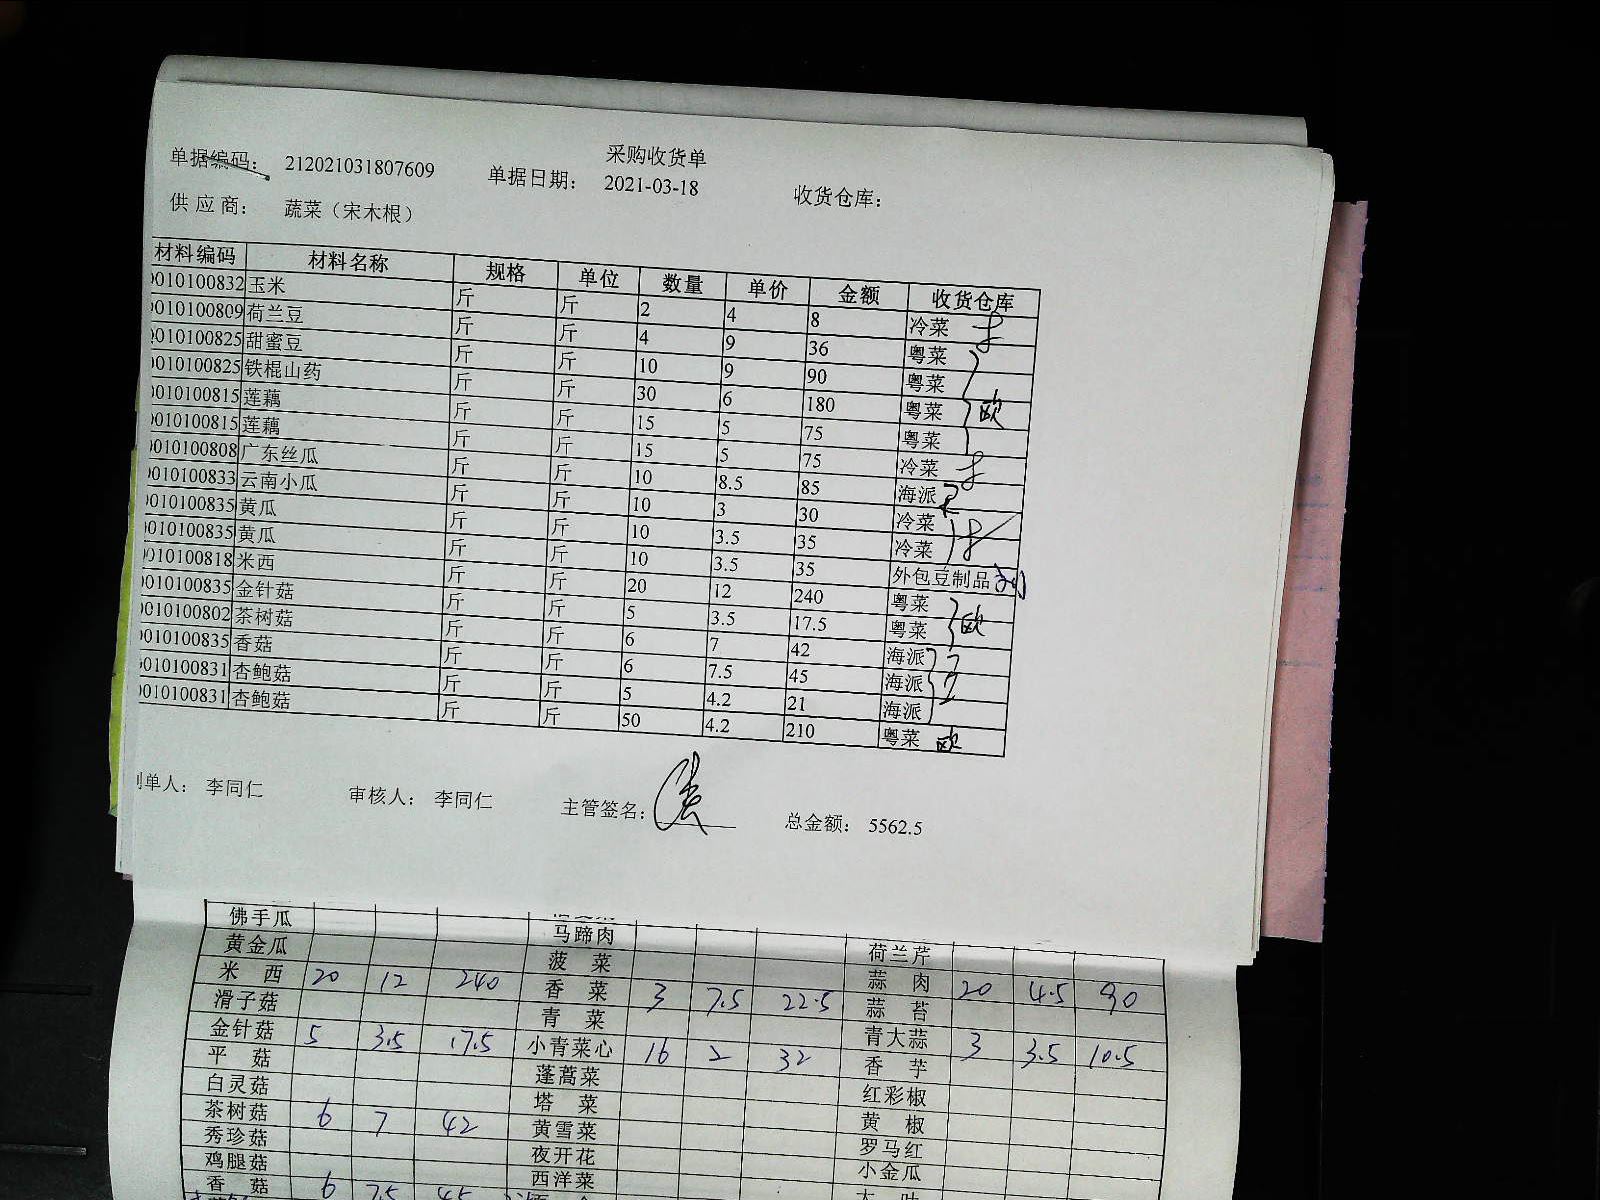 采购收货单
单据编码： 212021031807609 单据日期： 2021-03-18 收货仓库：
供应商： 蔬菜（宋木根）
材料编码 材料名称 规格 单位 数量 单价 金额 收货仓库
0010100832 玉米 斤 斤 2 4 8 冷菜
0010100809 荷兰豆 斤 斤 4 9 36 粤菜
0010100825 甜蜜豆 斤 斤 10 9 90 粤菜
0010100825 铁棍山药 斤 斤 30 6 180 粤菜 欧
0010100815 莲藕 斤 斤 15 5 75 粤菜
0010100815 莲藕 斤 斤 15 5 75 冷菜
0010100808 广东丝瓜 斤 斤 10 8.5 85 海派
0010100833 云南小瓜 斤 斤 10 3 30 冷菜
0010100835 黄瓜 斤 斤 10 3.5 35 冷菜
0010100835 黄瓜 斤 斤 10 3.5 35 外包豆制品
0010100818 米西 斤 斤 20 12 240 粤菜
0010100835 金针菇 斤 斤 5 3.5 17.5 粤菜 欧
0010100802 茶树菇 斤 斤 6 7 42 海派
0010100835 香菇 斤 斤 6 7.5 45 海派
0010100831 杏鲍菇 斤 斤 5 4.2 21 海派
0010100831 杏鲍菇 斤 斤 50 4.2 210 粤菜 欧
制单人： 李同仁 审核人： 李同仁 主管签名： 总金额： 5562.5
佛手瓜 马蹄肉 荷兰芹
黄金瓜 菠菜 蒜肉 20 4.5 90
米西 20 12 240 香菜 3 7.5 22.5 蒜苔
滑子菇 青菜 青大蒜 3 3.5 10.5
金针菇 5 3.5 17.5 小青菜心 16 2 32 香芋
平菇 蓬蒿菜 红彩椒
白灵菇 塔菜 黄椒
茶树菇 6 7 42 黄雪菜 罗马红
秀珍菇 夜开花 小金瓜
鸡腿菇 西洋菜
香菇 6 7.5 45